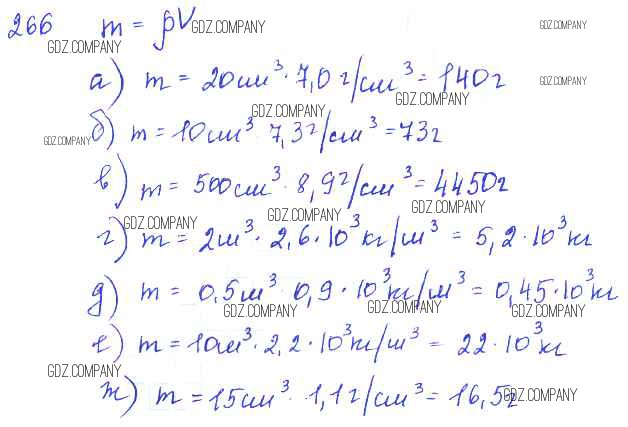 266 m = ρV GDZ.COMPANY GDZ.COMPANY
GDZ.COMPANY
а) m = 20 см³ · 7,0 г/см³ = 140 г GDZ.COMPANY
GDZ.COMPANY
GDZ.COMPANY
GDZ.COMPANY б) m = 10 см³ · 7,3 г/см³ = 73 г
в) m = 500 см³ · 8,9 г/см³ = 4450 г
GDZ.COMPANY GDZ.COMPANY GDZ.COMPANY
г) m = 2 м³ · 2,6 · 10³ кг/м³ = 5,2 · 10³ кг
д) m = 0,5 м³ · 0,9 · 10³ кг/м³ = 0,45 · 10³ кг
GDZ.COMPANY GDZ.COMPANY GDZ.COMPANY
е) m = 10 м³ · 2,2 · 10³ кг/м³ = 22 · 10³ кг
GDZ.COMPANY
ж) m = 15 см³ · 1,1 г/см³ = 16,5 г GDZ.COMPANY